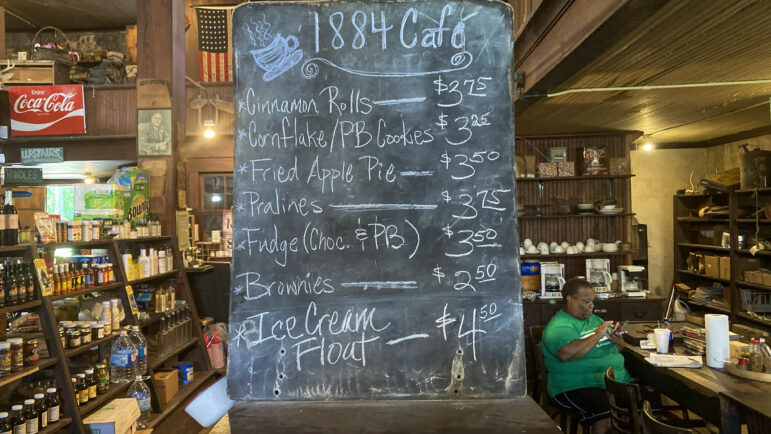 1884 Café
*Cinnamon Rolls — $3.75
*Cornflake/PB Cookies $3.25
*Fried Apple Pie — $3.50
*Pralines — $3.75
*Fudge (Choc. & PB) $3.50
*Brownies — $2.50
*Ice Cream Float — $4.50
Enjoy
Coca-Cola
UPSTAIRS
CANDLES